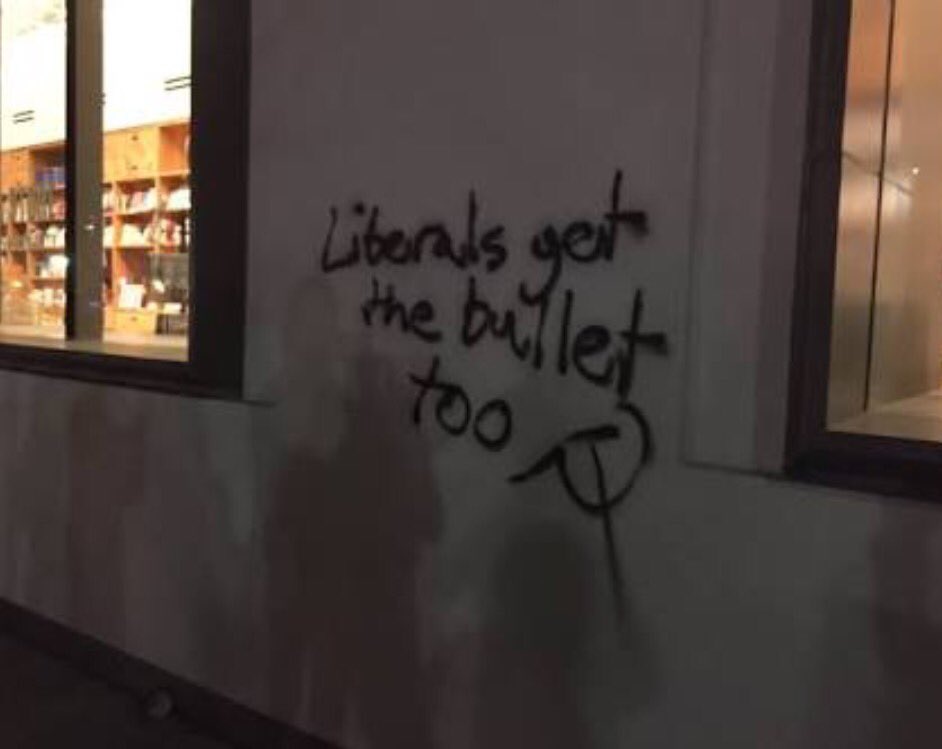 Liberals get
the bullet
too